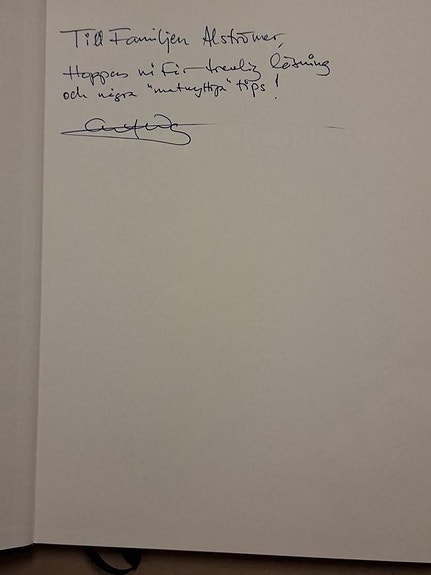 Till Familjen Alströmer,
Hoppas ni får trevlig läsning
och några "matnyttiga" tips!